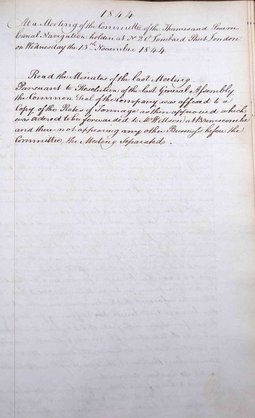 1844
At a Meeting of the Committee of the Thames and Severn
Canal Navigation holden at No 20 Lombard Street London
on Wednesday the 13th November 1844
Read the Minutes of the last Meeting
Pursuant to Resolution of the last General Assembly
the Common Seal of the Company was affixed to a
Copy of the Rates of Tonnage as then approved which
was ordered to be forwarded to Mr Wilson at Brimscombe
and there not appearing any other Business before the
Committee, the Meeting Separated.